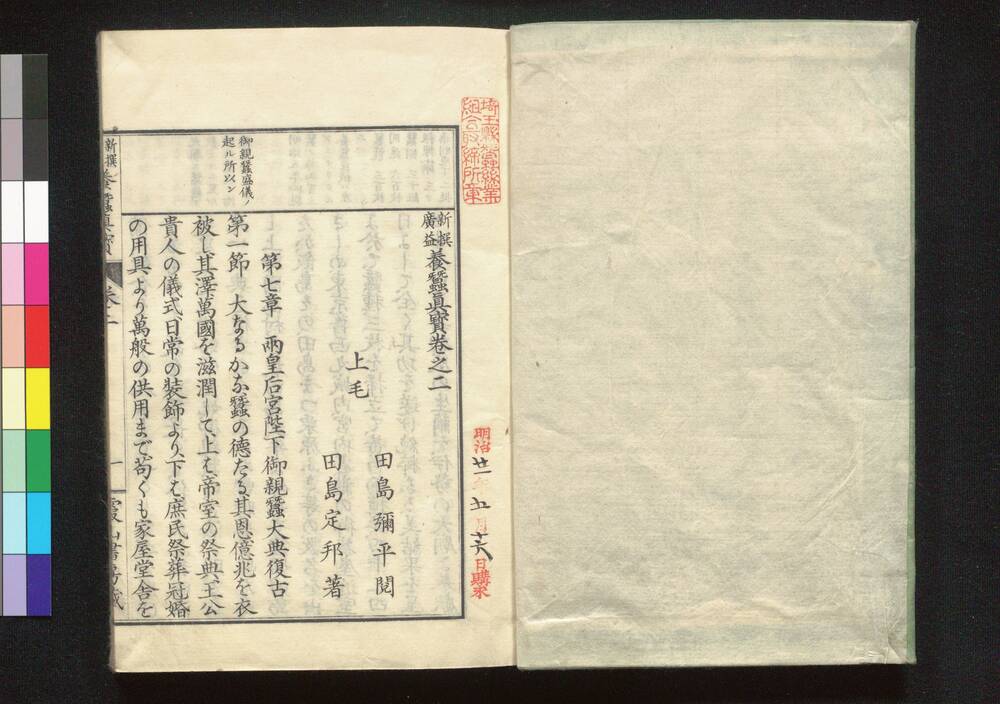 埼玉縣蠶絲業
組合取締所章
明治廿一年五月十六日購求
新撰
廣益
養蠶眞寶卷之二
上毛
田島彌平閲
田島定邦著
御親蠶盛儀ノ
起ル所以ン
第七章 兩皇后宮陛下御親蠶大典復古
第一節 大なるかな蠶の德たる其恩億兆を衣
被し其澤萬國を滋潤して、上は帝室の祭典、王公
貴人の儀式、日常の裝飾より、下は庶民祭葬冠婚
の用具より萬般の供用まで苟くも家屋堂舎を
新撰養蠶眞寶
卷二
一